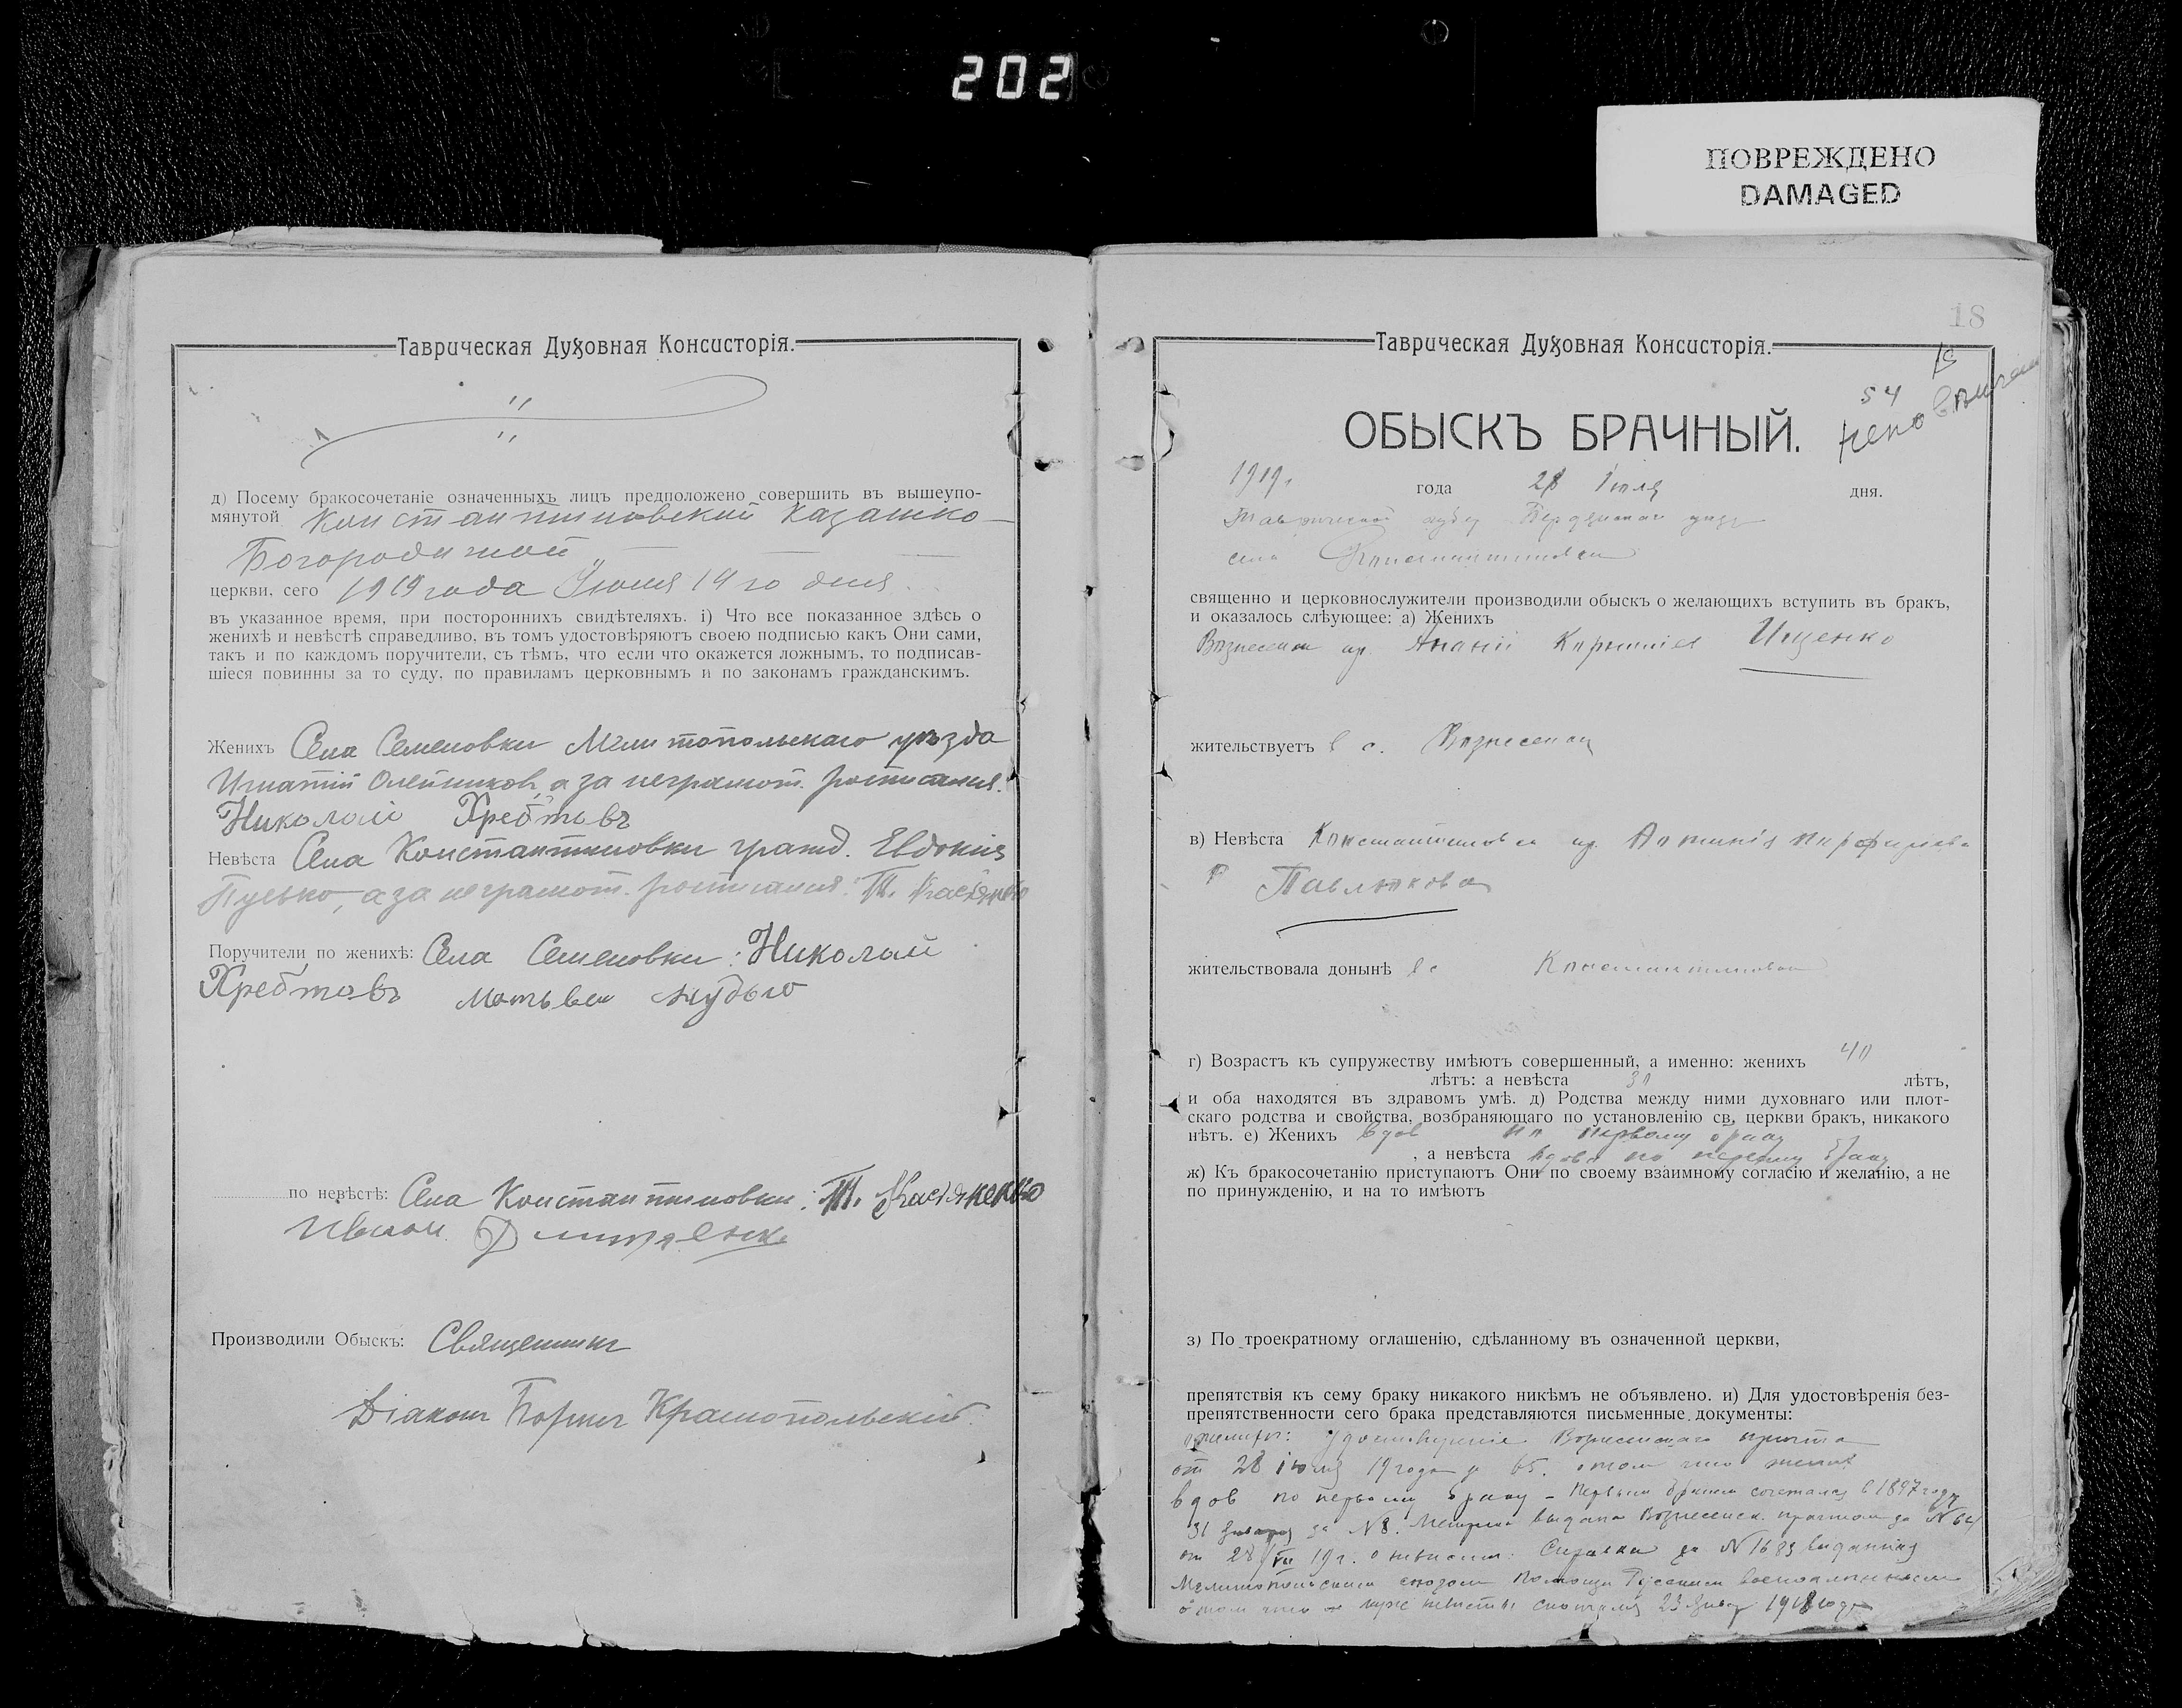 202
ПОВРЕЖДЕНО
DAMAGED
Таврическая Духовная Консисторія.
д) Посему бракосочетаніе означенныхъ лицъ предположено совершить въ вышеупо-
мянутой Константиновской Казанско-
Богородичной
церкви, сего 1919 года Іюля 19 го дня
въ указанное время, при постороннихъ свидѣтеляхъ. і) Что все показанное здѣсь о
женихѣ и невѣстѣ справедливо, въ томъ удостовѣряютъ своею подписью какъ Они сами,
такъ и по каждомъ поручители, съ тѣмъ, что если что окажется ложнымъ, то подписав-
шіеся повинны за то суду, по правиламъ церковнымъ и по законамъ гражданскимъ.
Женихъ Села Семеновки Мелитопольскаго уѣзда
Игнатій Олейников, а за неграмот.
Николай Хребтовъ
Невѣста Села Константиновки гражд. Евдокія
а за неграмот. Т.
Поручители по женихѣ: Села Семеновки: Николай
Хребтовъ
по невѣстѣ: Села Константиновки: Т.
Иван
Производили Обыскъ: Священникъ
Діаконъ Борисъ Краснопольскій.
18
Таврическая Духовная Консисторія.
54
ОБЫСКЪ БРАЧНЫЙ.
1919. года 28 Іюля дня.
Таврической губ Бердянскаго уезд
села Константиновки
священно и церковнослужители производили обыскъ о желающихъ вступить въ бракъ,
и оказалось слѣующее: а) Женихъ
гр. Ананій Ищенко
жительствуетъ в с.
в) Невѣста гр.
Павлюкова
жительствовала донынѣ в с
г) Возрастъ къ супружеству имѣютъ совершенный, а именно: женихъ 40
лѣтъ: а невѣста лѣтъ,
и оба находятся въ здравомъ умѣ. д) Родства между ними духовнаго или плот-
скаго родства и свойства, возбраняющаго по установленію св, церкви бракъ, никакого
нѣтъ. е) Женихъ вдов по первому браку
, а невѣста вдова по первому браку
ж) Къ бракосочетанію приступаютъ Они по своему взаимному согласію и желанію, а не
по принужденію, и на то имѣютъ
з) По троекратному оглашенію, сдѣланному въ означенной церкви,
препятствія къ сему браку никакого никѣмъ не объявлено. и) Для удостовѣренія без-
препятственности сего брака представляются письменные документы:
Вознесенскаго причта
от 28 іюля 19 года 65. о том что жених
вдов по первому браку - Первым браком сочетался в 1897 году
31 января за N 8. Метрика выдана Вознесенск. причтом за N
от 28/VII 19 г. о невесте: Справка за N 1683 выданная
Мелитопольским союзом помощи Русским военнопленным
о том что муж невесты 23 Янвр 1918 года